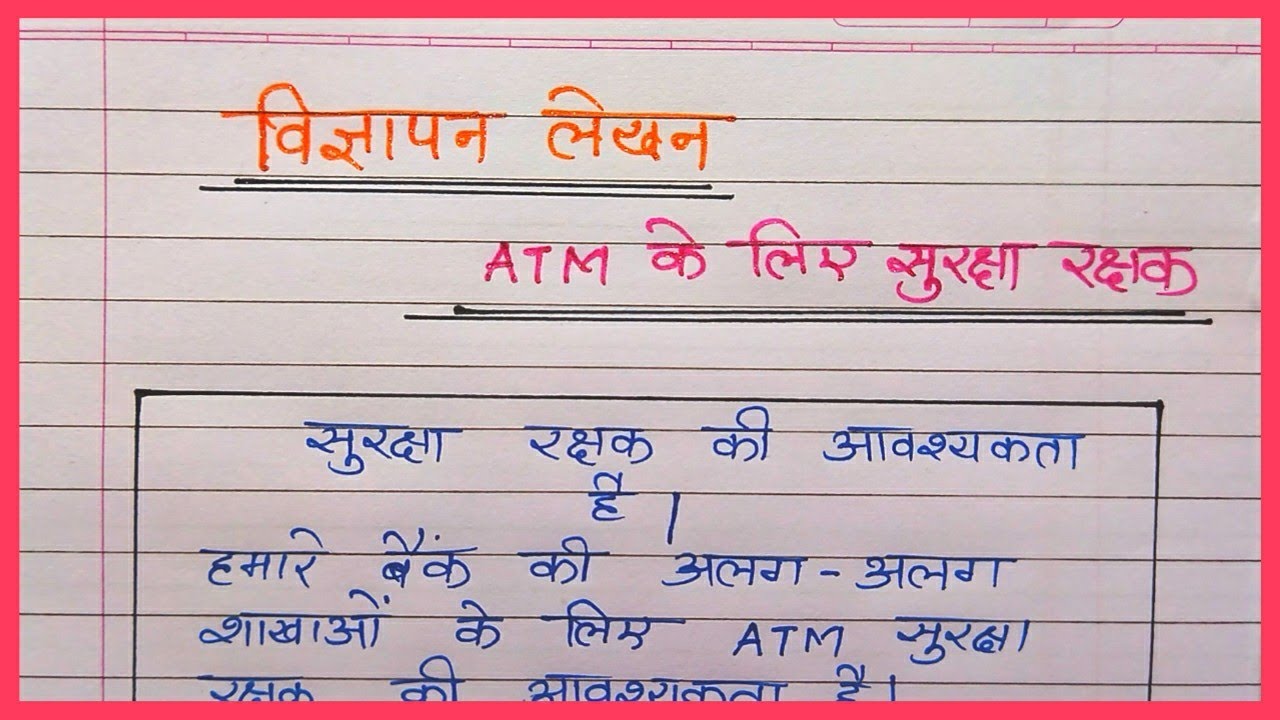 विज्ञापन लेखन
ATM के लिए सुरक्षा रक्षक
सुरक्षा रक्षक की आवश्यकता
है।
हमारे बैंक की अलग-अलग
शाखाओं के लिए ATM सुरक्षा
रक्षक की आवश्यकता है।